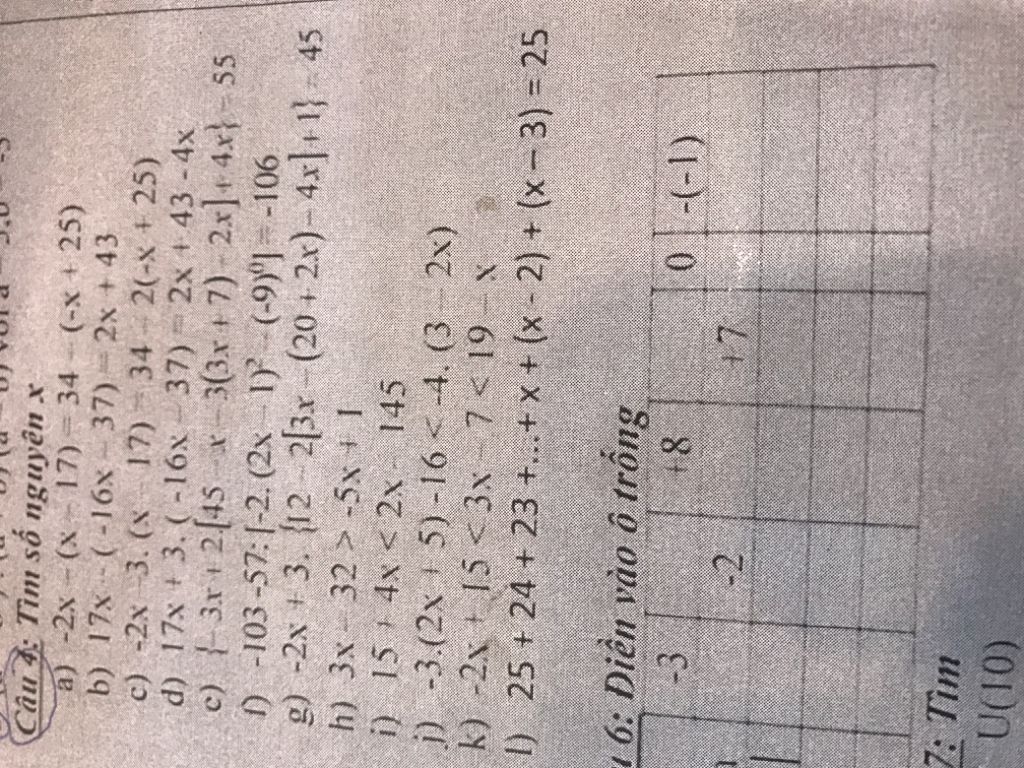 Câu 4: Tìm số nguyên x
a) -2x – (x – 17) = 34 – (-x + 25)
b) 17x – ( -16x – 37) = 2x + 43
c) -2x – 3. (x – 17) = 34 – 2(-x + 25)
d) 17x + 3. ( -16x – 37) = 2x + 43 - 4x
e) {– 3x + 2[45 – x – 3(3x + 7) – 2x] + 4x} = 55
f) -103 -57: [-2. (2x – 1)² – (-9)⁰] = -106
g) -2x + 3. {12 – 2[3x – (20 + 2x) – 4x] + 1} = 45
h) 3x – 32 > -5x + 1
i) 15 + 4x < 2x – 145
j) -3.(2x + 5) -16 < -4. (3 – 2x)
k) -2x + 15 < 3x – 7 < 19 – x
l) 25 + 24 + 23 +...+ x + (x - 2) + (x – 3) = 25
6: Điền vào ô trống
-3 +8 0 -(-1)
-2 +7
7: Tìm
U(10)